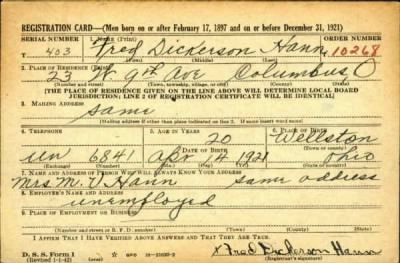 REGISTRATION CARD—(Men born on or after February 17, 1897 and on or before December 31, 1921)
SERIAL NUMBER 1. NAME (Print) ORDER NUMBER
403 Fred Dickerson Hann 10268
(First) (Middle) (Last)
2. PLACE OF RESIDENCE (Print)
23 W 9th Ave Columbus, O
(Number and street) (Town, township, village, or city) (County) (State)
[THE PLACE OF RESIDENCE GIVEN ON THE LINE ABOVE WILL DETERMINE LOCAL BOARD
JURISDICTION; LINE 2 OF REGISTRATION CERTIFICATE WILL BE IDENTICAL]
3. MAILING ADDRESS
Same
[Mailing address if other than place indicated on line 2. If same insert word same]
4. TELEPHONE 5. AGE IN YEARS 6. PLACE OF BIRTH
20 Wellston
DATE OF BIRTH (Town or county)
Un 6841 Apr 14 1921 Ohio
(Exchange) (Number) (Mo.) (Day) (Yr.) (State or country)
7. NAME AND ADDRESS OF PERSON WHO WILL ALWAYS KNOW YOUR ADDRESS
Mrs. M. V. Hann Same address
8. EMPLOYER'S NAME AND ADDRESS
unemployed
9. PLACE OF EMPLOYMENT OR BUSINESS
(Number and street or R. F. D. number) (Town) (County) (State)
I AFFIRM THAT I HAVE VERIFIED ABOVE ANSWERS AND THAT THEY ARE TRUE.
D. S. S. Form 1 GPO x Fred Dickerson Hann
(Revised 1-1-42) (Registrant's signature)